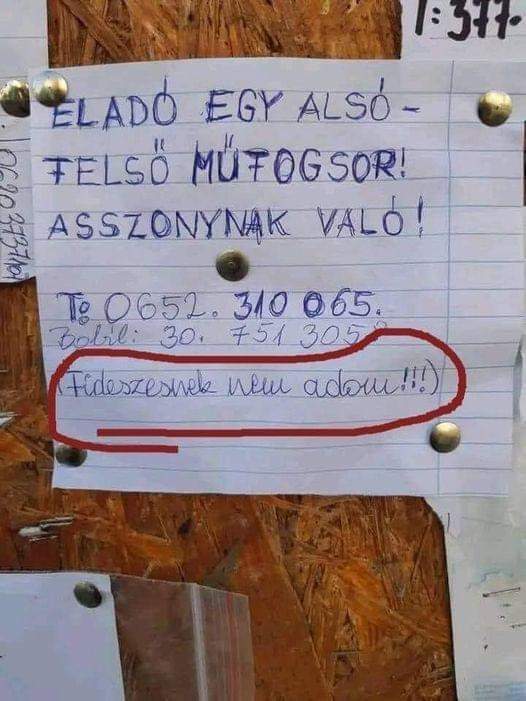 1:377.
ELADÓ EGY ALSÓ-
FELSŐ MŰFOGSOR!
ASSZONYNAK VALÓ!
T: 0652. 310 065.
Bobil: 30. 751 305
(Fideszesnek nem adom!!!)